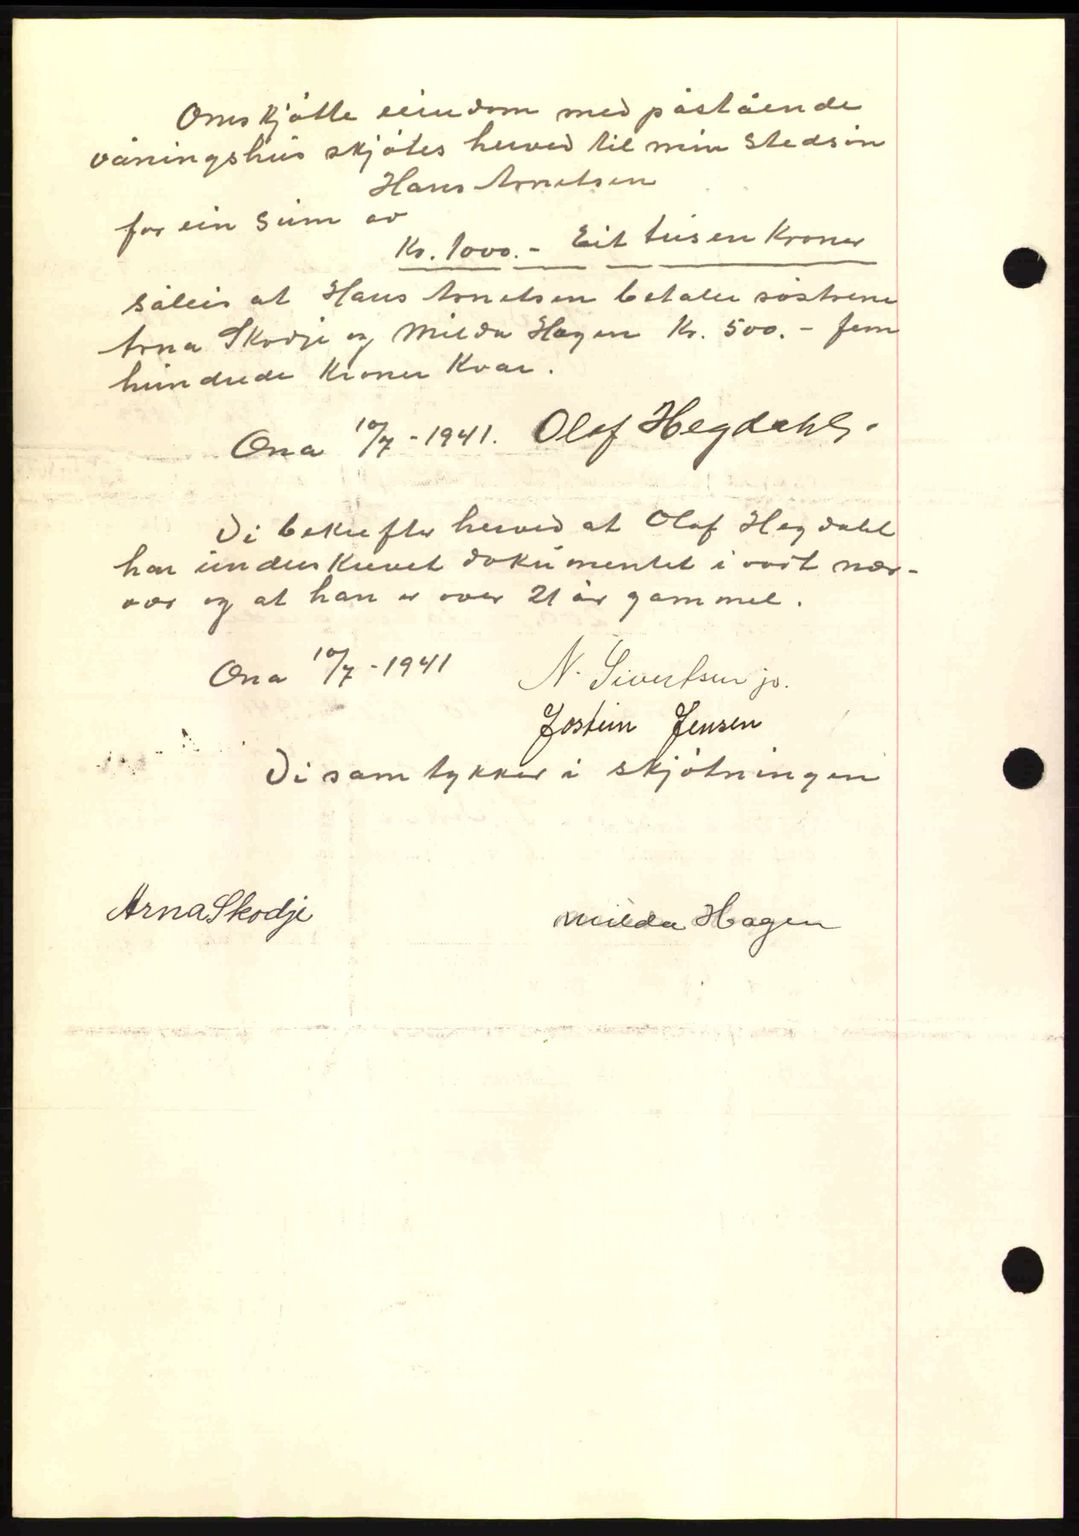 Omskjøtte eiendom med påstående
våningshus skjøtes herved til min stedsøn
Hans Arnetsen
for ein sum av
Kr. 1000.- Eit tusen Kroner
såleis at Hans Arnetsen betaler søstrene
Arna Skodje og Milda Hagen Kr. 500.- fem
hundrede Kroner Kvar.
Ona 10/7 - 1941. Olaf Hegdahl.
Vi bekrefter herved at Olaf Hegdahl
har underskrevet dokumentet i vort nær-
vær og at han er over 21 år gammel.
Ona 10/7 - 1941 N. Sivertsen jr.
Jostein Jensen
Vi samtykker i skjøtningen
Arna Skodje Milda Hagen